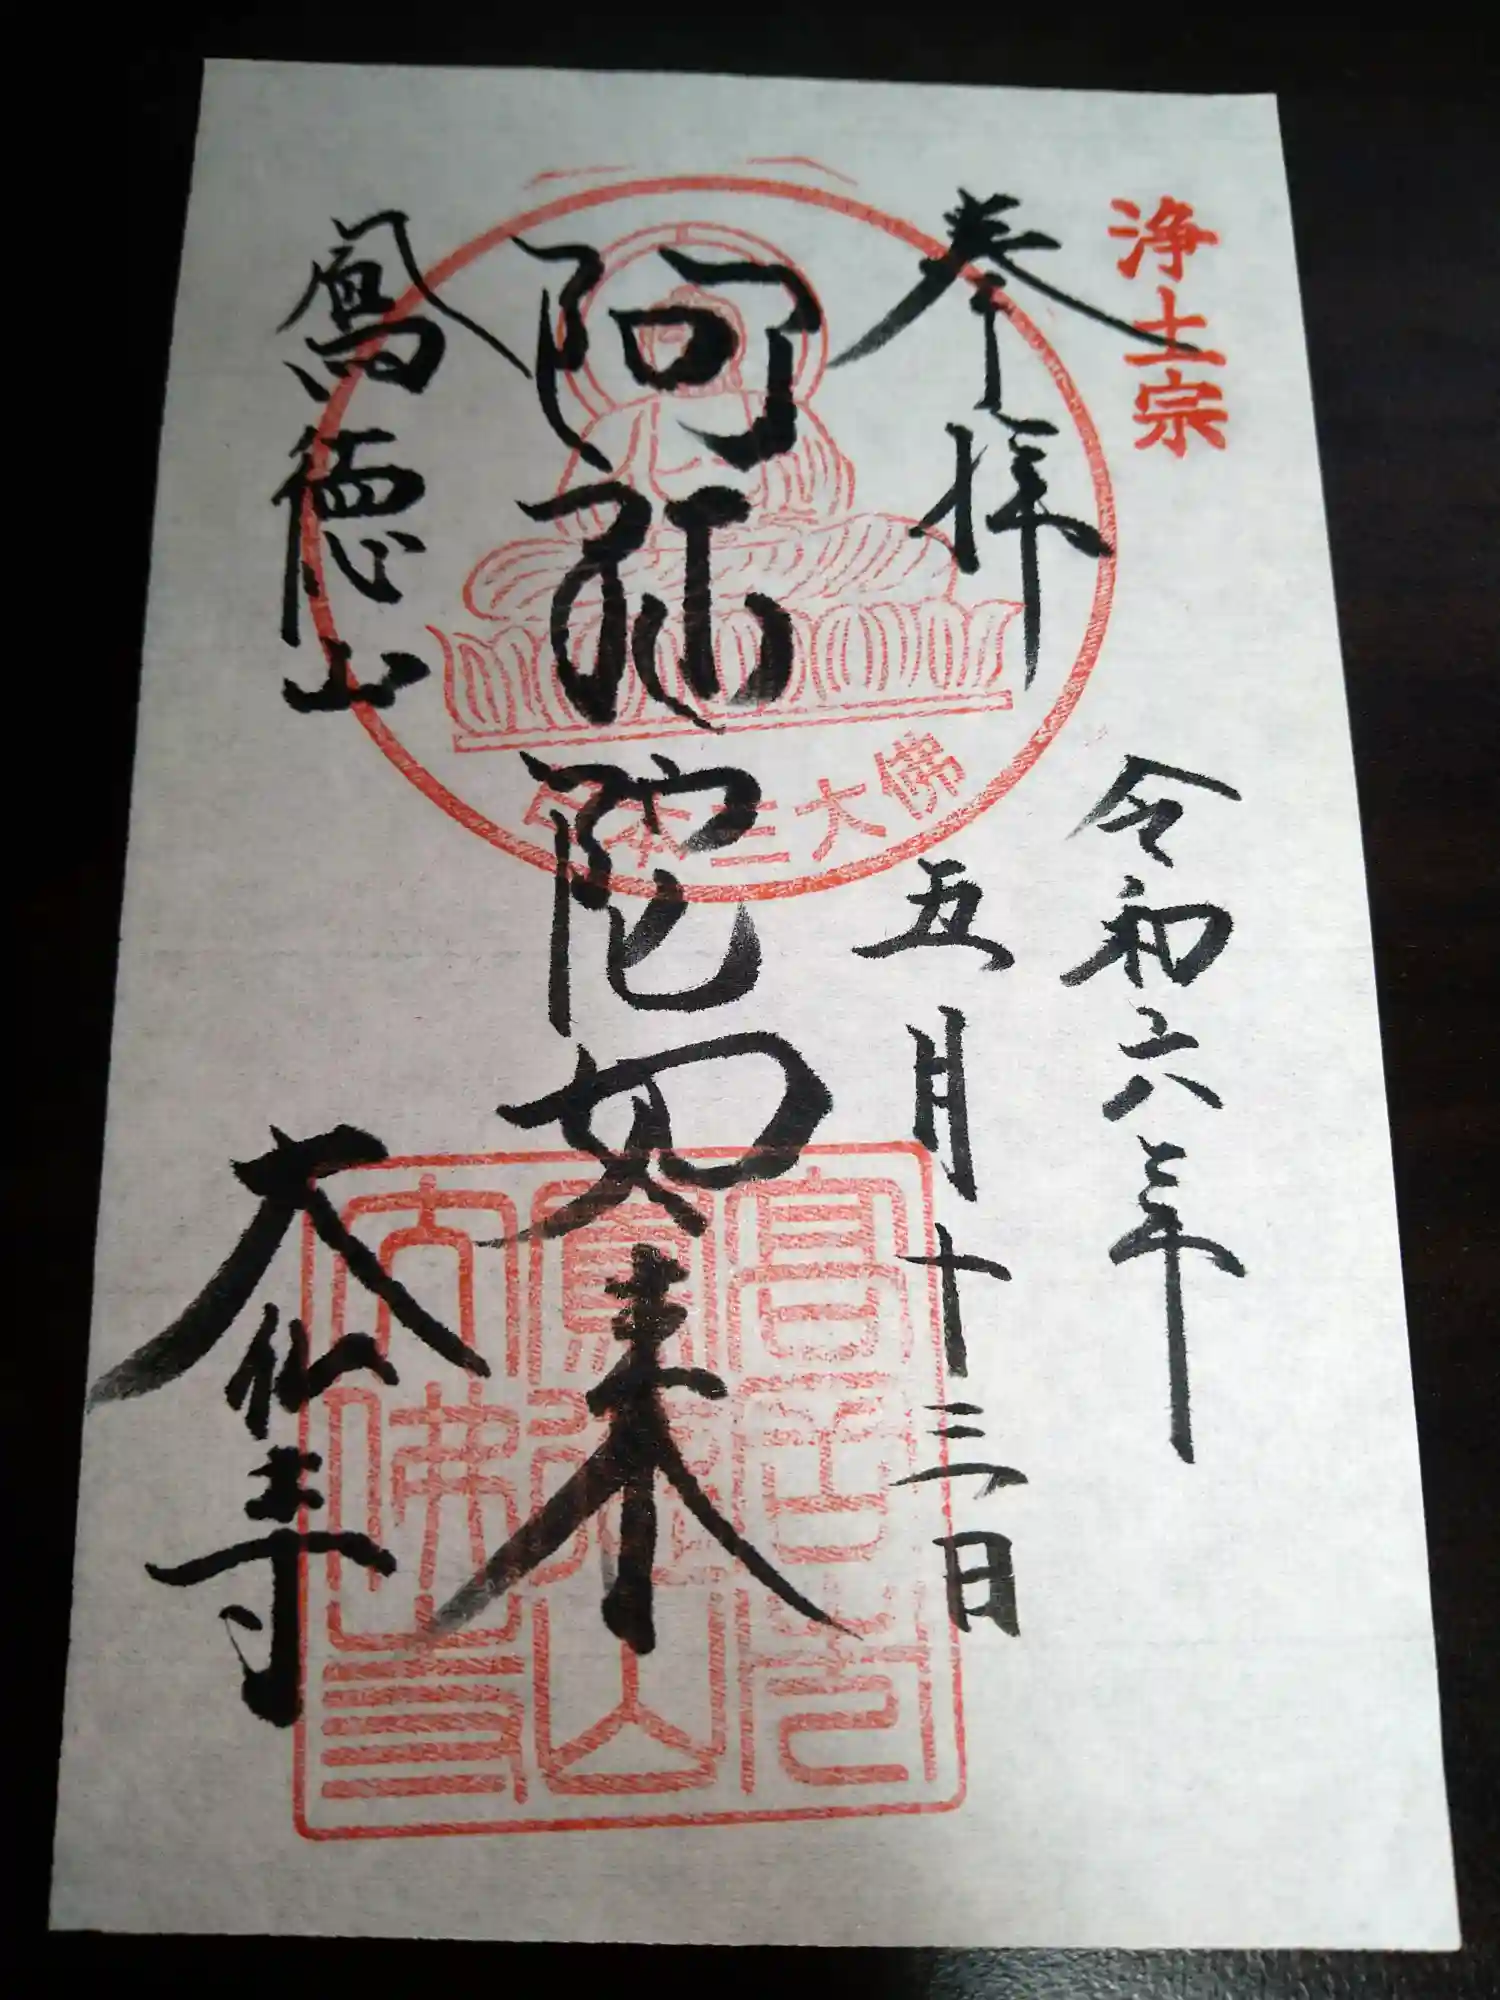 浄土宗
奉拝
令和六年
五月十三日
阿弥陀如来
日本三大佛
鳳徳山
大仏寺
高岡市
鳳徳山
大佛寺